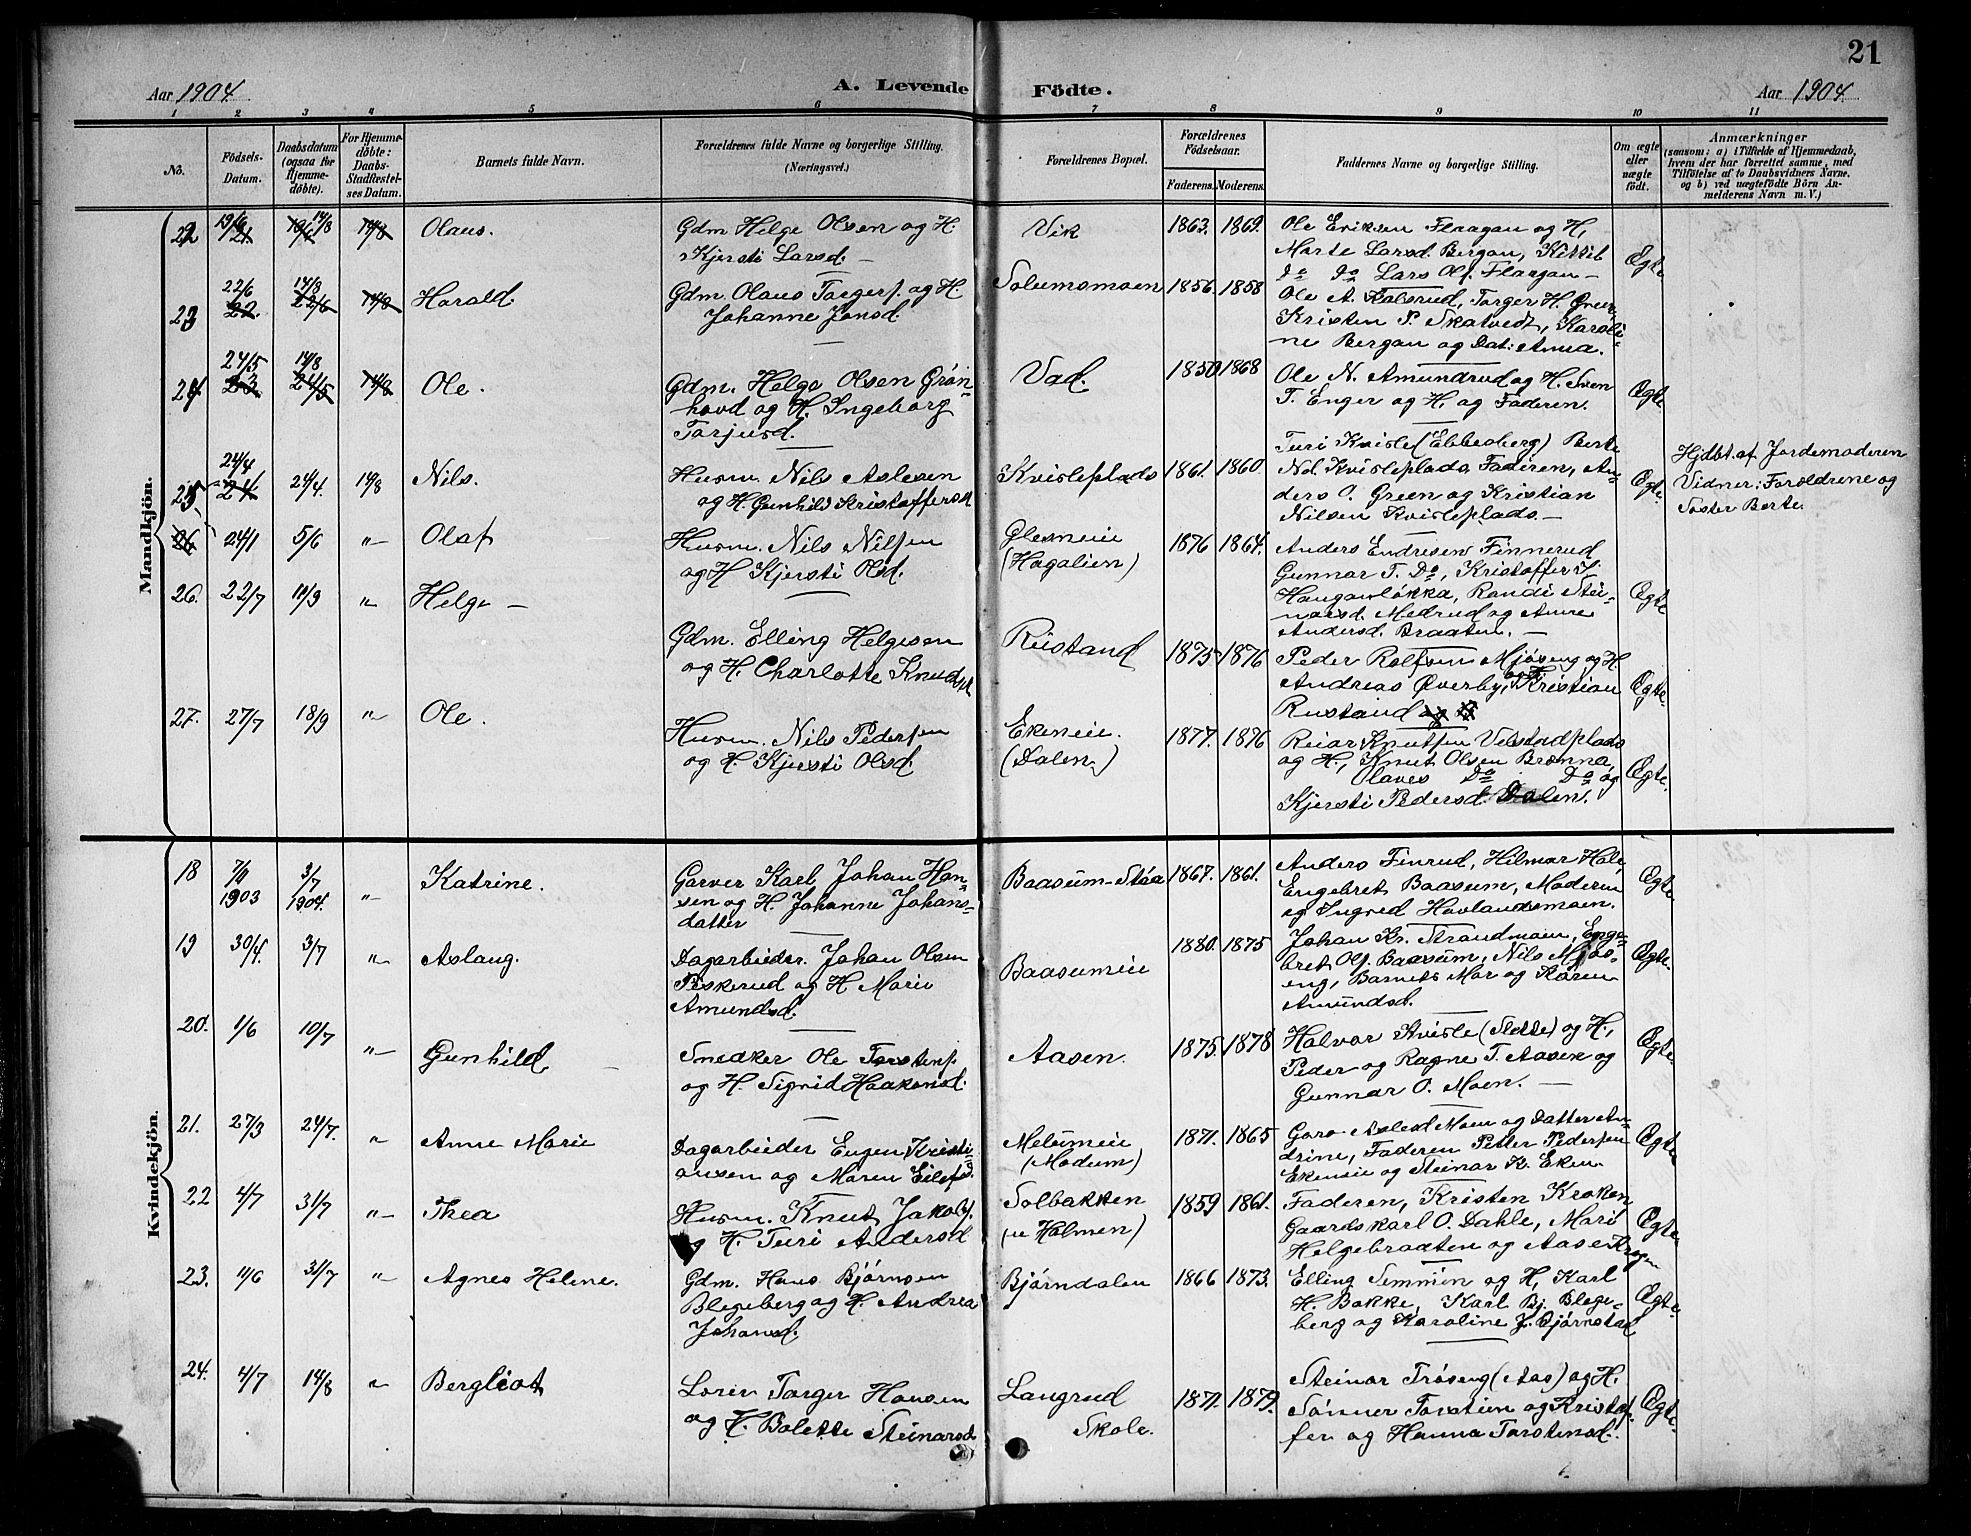 21
Aar 1904. A. Levende Födte. Aar 1904.
1 2 3 4 5 6 7 8 9 10 11
No.
Födsels-Datum.
Daabsdatum (ogsaa for Hjemme-döbte).
For Hjemme-döbte: Daabs-Stadfæstel-ses Datum.
Barnets fulde Navn.
Forældrenes fulde Navne og borgerlige Stilling.
(Næringsvei.)
Forældrenes Bopæl.
Forældrenes Födselsaar.
Faderens. Moderens.
Faddernes Navne og borgerlige Stilling.
Om ægte eller uægte födt.
Anmærkninger
(saasom: a) i Tilfælde af Hjemmedaab,
hvem der har forrettet samme, med
Tilföielse af to Daabsvidners Navne,
og b) ved uægtefödte Börn An-
melderens Navn m. V.)
Mandkjön.
22 19/6 14/8 Olaus. Gdm Helge Olsen og H. Kjersti Larsd. — Vik 1863. 1869. Ole Eriksen Flaagan og H,
Marte Larsd. Bergan, Kittil
Do Do Lars Ols. Flargan — Ægte
23 22/6 14/8 Harald Gdm. Olaus Torgers. og H.
Johanne Jonsd. Solumsmoen 1856. 1858 Ole A. Kolsrud, Torger H. Green
Kristen P. Skatvedt, Karoli-
ne Bergan og Dat: Anna.
24 24/5 14/8 Ole. Gdm. Helge Olsen Grøn-
hovd og H. Ingeborg
Torjusd. Vad. 1850 1868 Ole N. Amundrud og H. Sven
T. Enger og H. og Faderen. Ægte
25 24/4 24/4. 14/8 Nils. Husm. Nils Aslesen
og H. Gunhild Kristoffersd Kvisleplads 1861. 1860 Turi Kvisle (Ebbesberg) Berte
Nd. Kvisleplads, Faderen, An-
ders O. Green og Kristian
Nilsen Kvisleplads. — Ægte. Hjdbt. af Jordemoderen
Vidner: Forældrene og
Søster Berte.
26 24/1 5/6 "– Olaf Husm. Nils Nilsen
og H Kjersti Olsd. Glesneie
(Hagalien) 1876 1864. Anders Endresen Finnerud
Gunnar T. Do, Kristoffer K.
Haugarløkka, Randi Stei-
narsd. Medrud og Anne
Andersd. Braaten. — Ægte
26. 22/7 11/9 "– Helge — Gdm. Elling Helgesen
og H. Charlotte Knudsd Rustand 1875 1876 Peder Rolfsen Mjøseng og H.
Andreas Øverby, Kristian
Rustand Ægte.
27. 27/7 18/9 "– Ole. Husm. Nils Pedersen
og H. Kjersti Olsd. Ekeneie.
(Dalen) 1877. 1876 Reiar Knutsen Velstadplads
og H., Knut Olsen Brønna,
Olaves Do Do og
Kjersti Pedersd. Dalen. Ægte.
Kvindekjön.
18 1903 3/7 1904. "– Katrine. Garver Karl Johan Han-
sen og H. Johanne Johans-
datter Baasum-Staa 1867. 1861. Anders Finrud, Hilmar Hole,
Engebret Baasum, Moderen
og Ingred Hovlandsmoen. Ægte
19 30/4. 3/7 "– Aslaug. Dagarbeider. Johan Olsen
Peskerud og H Marie
Amundsd. Baasumeie 1880. 1875 Johan Kr. Strandmoen, Enge-
bret Ols. Baasum, Nils Mjøs-
eng, Barnets Mor og Karen
Amundsd. Ægte.
20. 1/6 10/7 "– Gunhild Snedker Ole Torstens.
og H. Sigrid Haakensd. Aasen. 1875. 1878 Halvor Kvisle (Slette) og H.,
Peder og Ragne T. Aasen og
Gunnar O. Moen. — Ægte.
21. 27/3 24/7. " Anne Marie Dagarbeider Eugen Kristi-
ansen og Maren Eilefsd. Melumeie
(Modum) 1871. 1865 Garo Aslesd Moen og Datter An-
drine, Faderen Petter Pedersen
Ekeneie og Steinar K. Eken. Ægte
22 4/7 31/7 "– Thea Husm. Knut Jakobs.
og H. Turi Andersd Solbakken
(u Holmen) 1859 1861. Faderen, Kristen Kroken
Gaardskarl O. Dahle, Mari
Helgebraaten og Aase Krogen Ægte
23. 11/6 31/7 "– Agnes Helene. Gdm. Hans Bjørnsen
Blegeberg og H. Andrea
Johansd. Bjørndalen 1866 1873. Elling Semmen og H, Karl
H. Bakke, Karl Bj. Blege-
berg og Karoline J. Bjørnstad Ægte.
24. 4/7 14/8 " Bergliot Lærer Torger Hansen
og H. Bolette Steinarsd Langrud
Skole. 1871. 1879. Steinar Trøseng (Aas) og H.
Sønner Torstein og Kristof-
fer og Hanna Torstensd. Ægte.